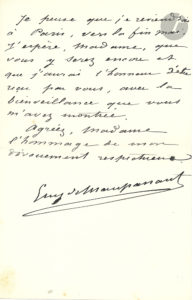 Je pense que je reviendrai
à Paris, vers la fin mai
J'espère, Madame, que
vous y serez encore et
que j'aurai l'honneur d'être
reçu par vous, avec la
bienveillance que vous
m'avez montrée.
Agréez, Madame
l'hommage de mon
dévouement respectueux
Guy de Maupassant